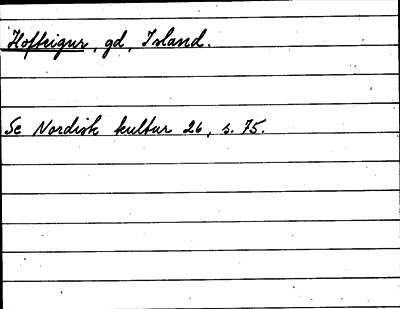 Hofteigur, gd, Island.
Se Nordisk kultur 26, s. 75.